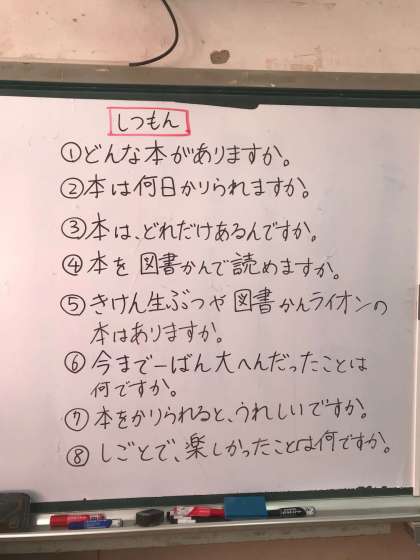 しつもん
①どんな本がありますか。
②本は何日かりられますか。
③本は、どれだけあるんですか。
④本を図書かんで読めますか。
⑤きけん生ぶつや図書かんライオンの
本はありますか。
⑥今まで一ばん大へんだったことは
何ですか。
⑦本をかりられると、うれしいですか。
⑧しごとで、楽しかったことは何ですか。